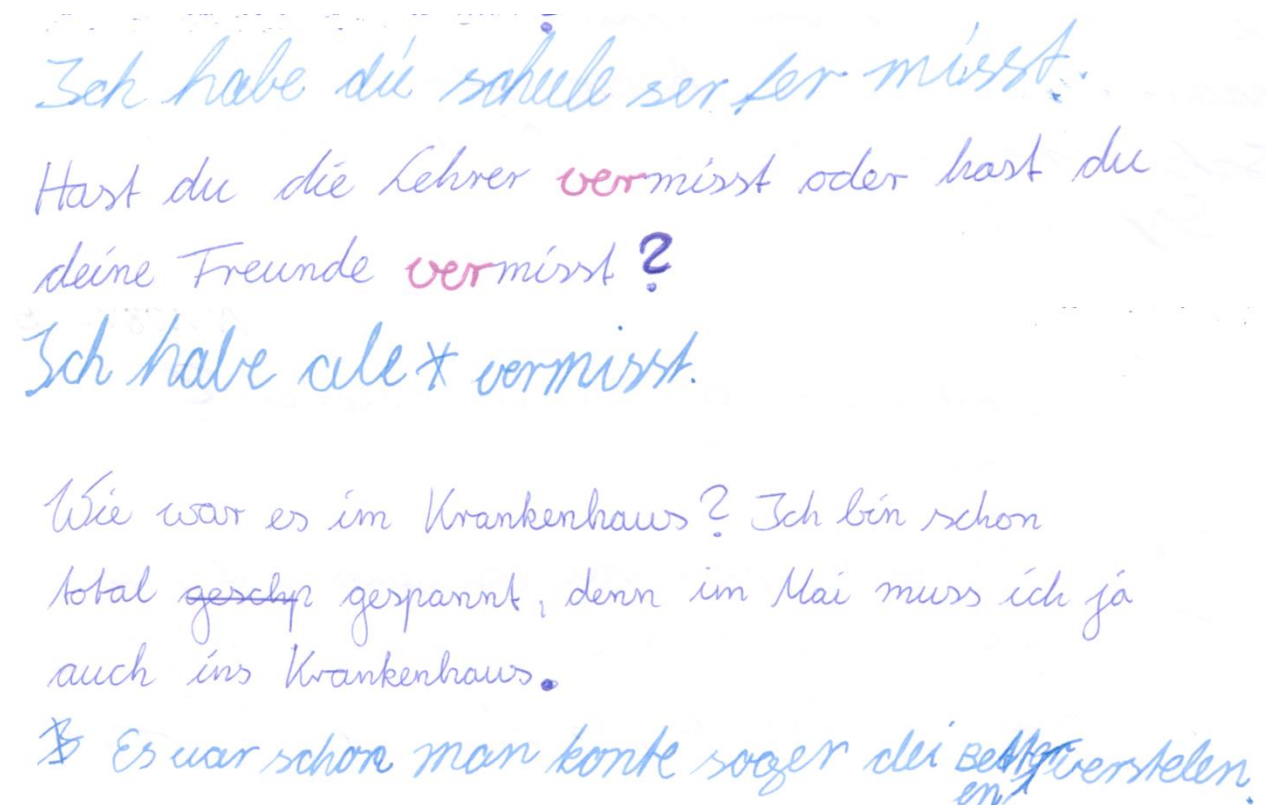 Ich habe die schule ser fer misst.
Hast du die Lehrer vermisst oder hast du
deine Freunde vermisst?
Ich habe alle * vermisst.
Wie war es im Krankenhaus? Ich bin schon
total gespannt, denn im Mai muss ich ja
auch ins Krankenhaus.
Es war schon man konte soger dei Betten verstelen.